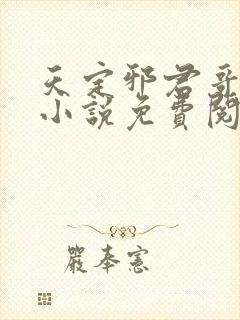 天定邪君哥
小說免費閱
嚴奉憲